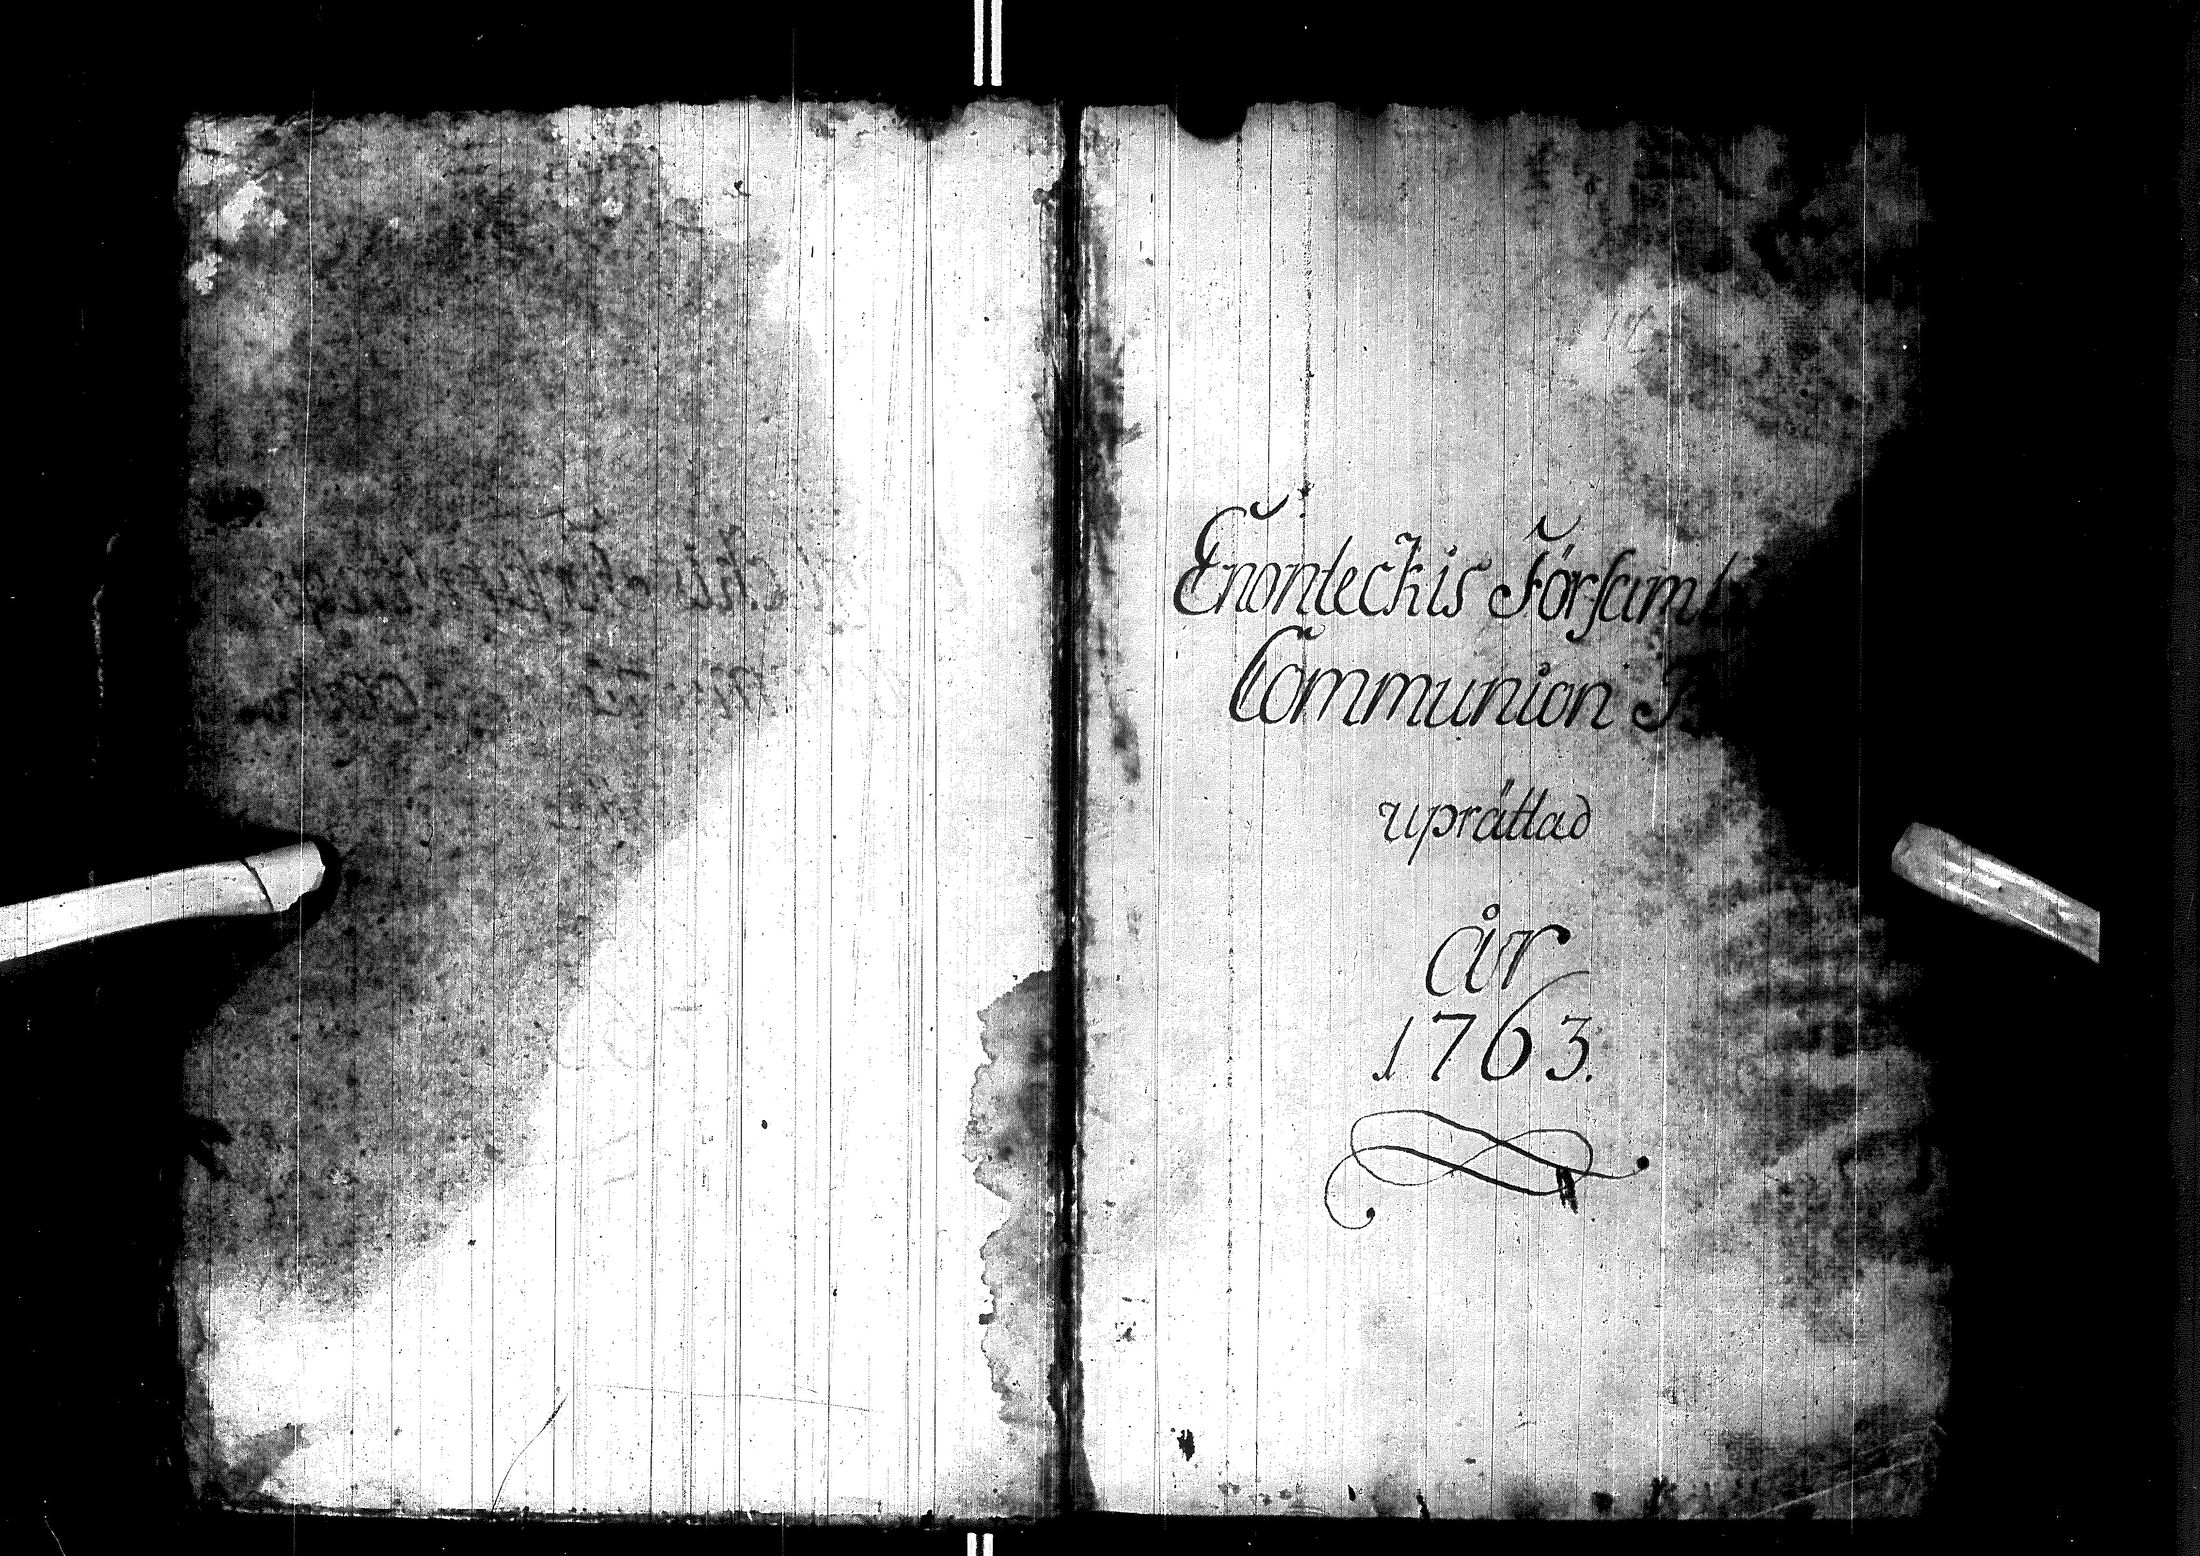 Enonteckis Församl
Communion
upråttad
år
1763.